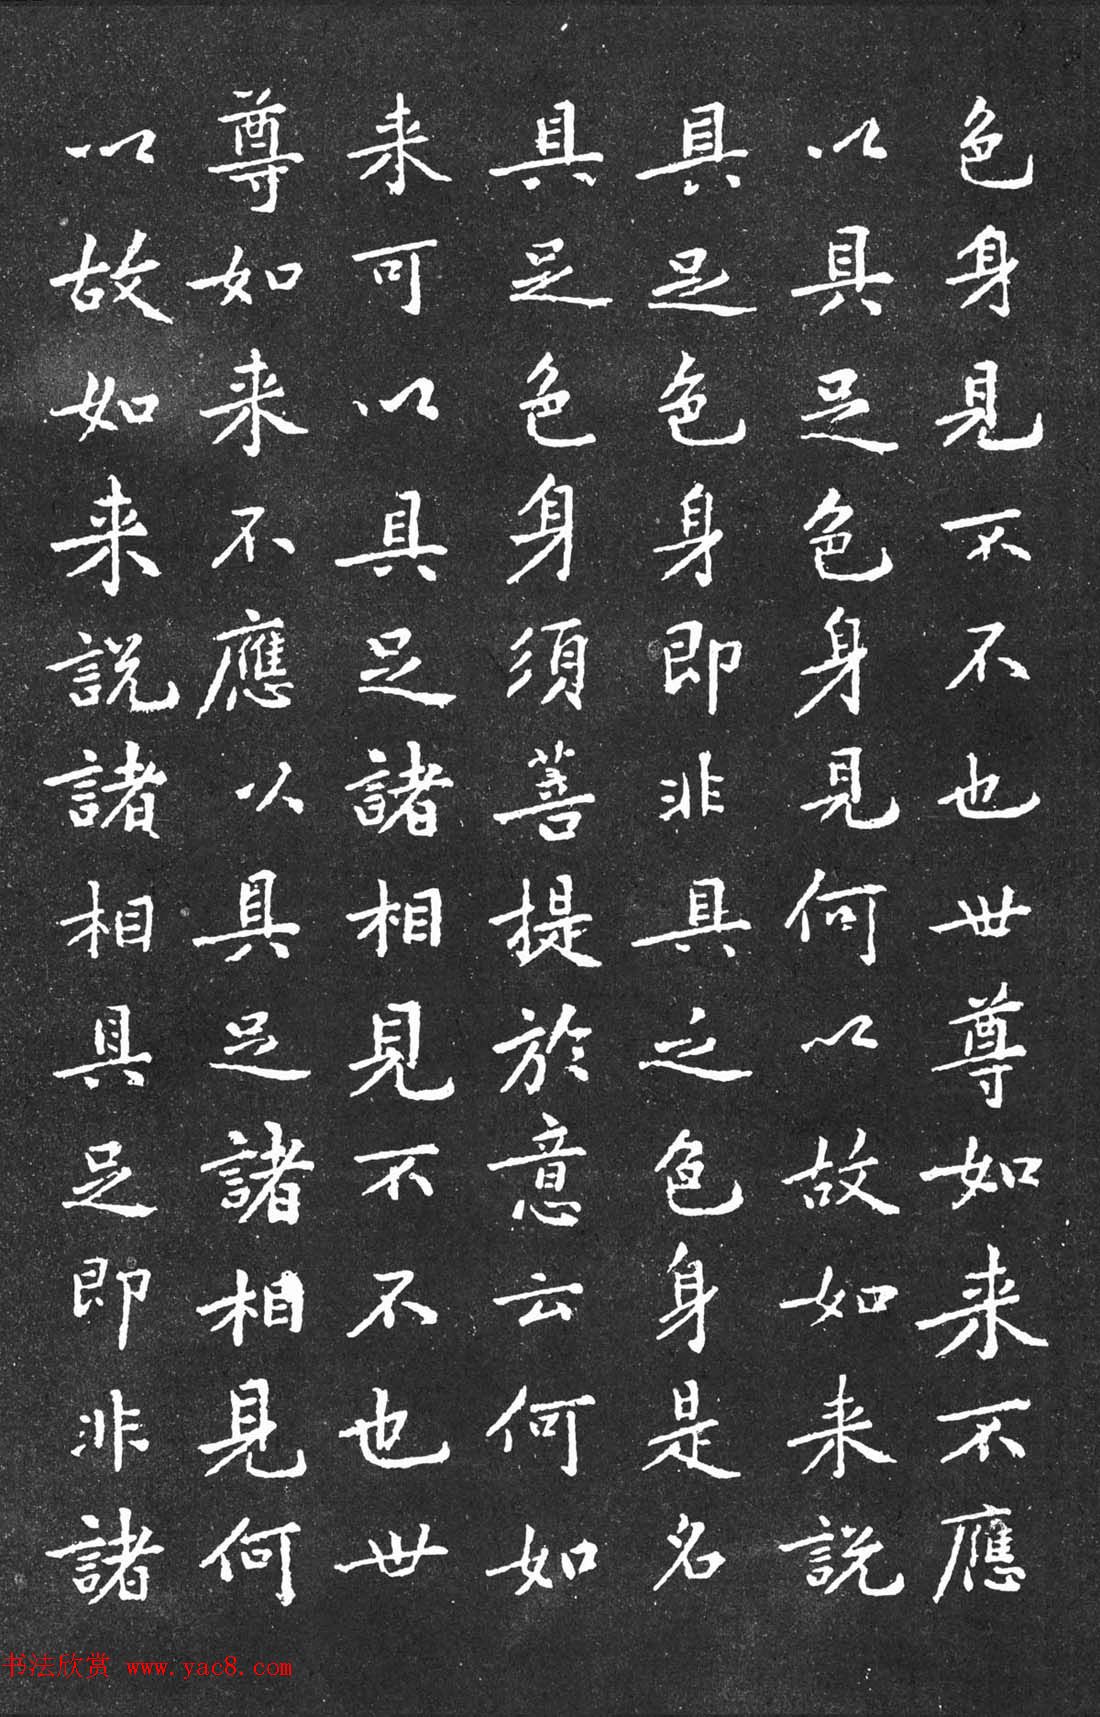 色身見不不也世尊如来不應
以具足色身見何以故如来説
具足色身即非具之色身是名
具足色身須菩提於意云何如
来可以具足諸相見不不也世
尊如来不應以具足諸相見何
以故如来説諸相具足即非諸
书法欣赏 www.yac8.com